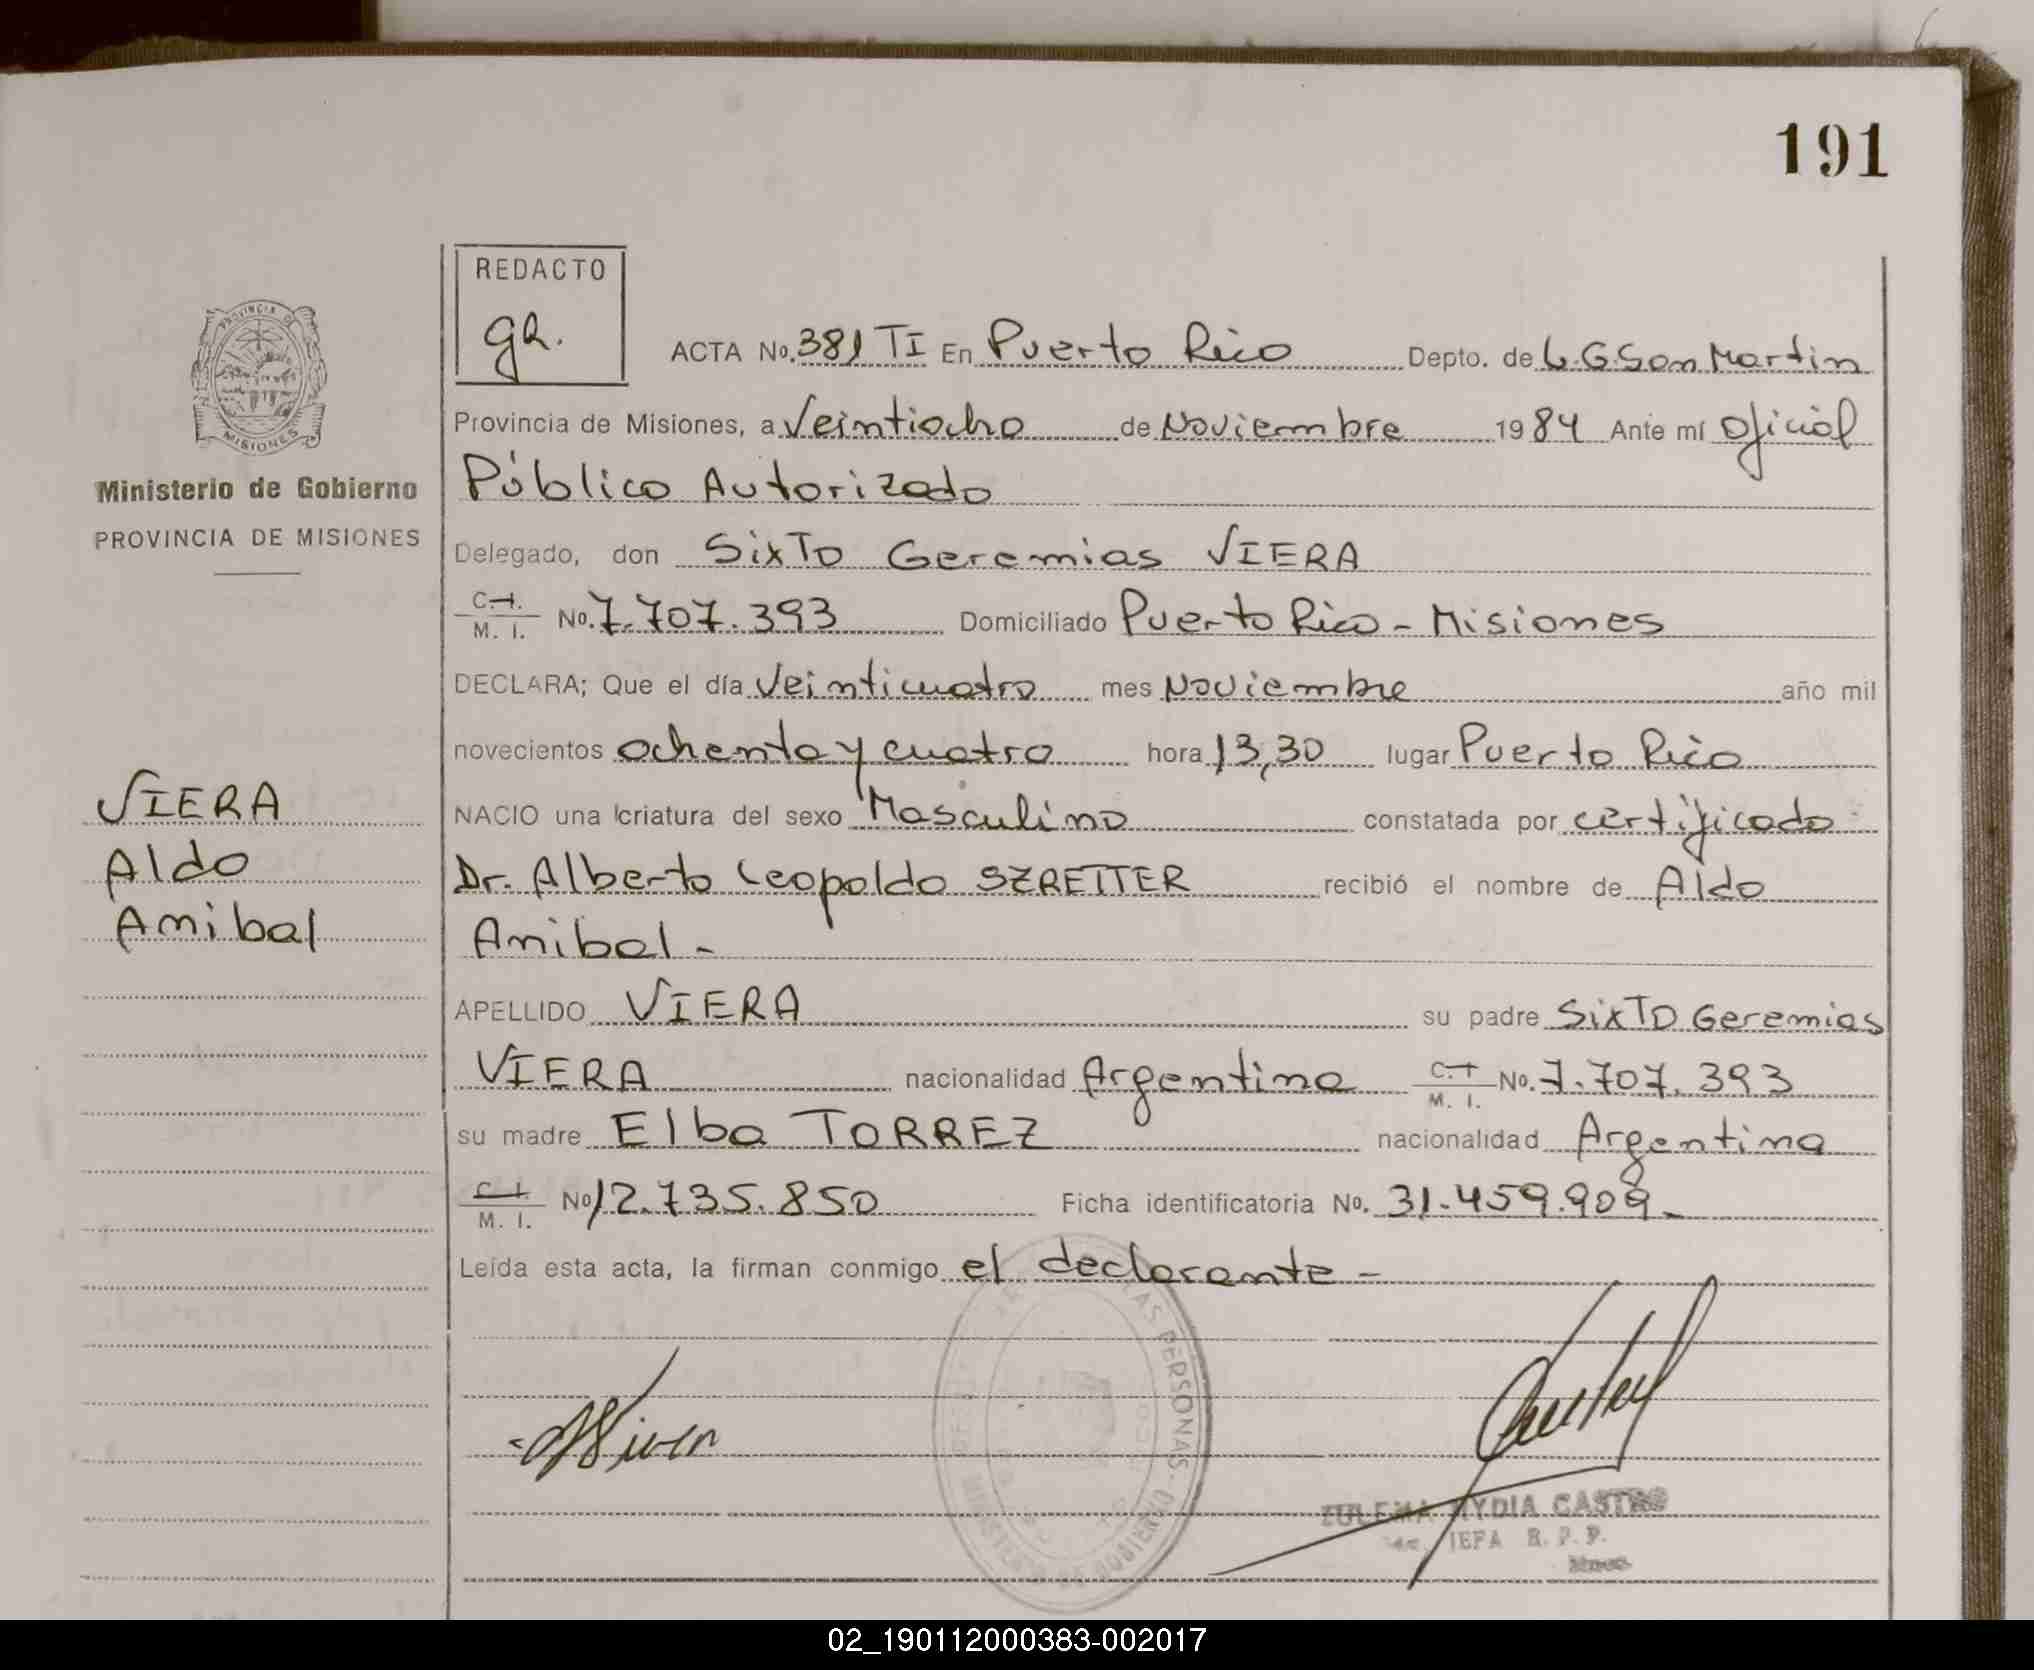 191
REDACTO
gR.
ACTA No. 381 TI En Puerto Rico Depto. de L.G.San Martin
Provincia de Misiones, a Veintiocho de Noviembre 1984 Ante mí Oficial
Público Autorizado
Delegado, don SixTo Geremias VIERA
C.I. M. I. No. 7.707.393 Domiciliado Puerto Rico - Misiones
DECLARA; Que el día Veinticuatro mes Noviembre año mil
novecientos ochenta y cuatro hora 13,30 lugar Puerto Rico
NACIO una criatura del sexo Masculino constatada por certificado
Dr. Alberto Leopoldo SZRETTER recibió el nombre de Aldo
Anibal -
APELLIDO VIERA su padre SixTo Geremias
VIERA nacionalidad Argentina C.I. M. I. No. 7.707.393
su madre Elba TORREZ nacionalidad Argentina
C.I. M. I. No 12.735.850 Ficha identificatoria No. 31.459.909 -
Leída esta acta, la firman conmigo el declarante -
PROVINCIA DE
MISIONES
Ministerio de Gobierno
PROVINCIA DE MISIONES
VIERA
Aldo
Anibal
LAS PERSONAS
MINISTERIO DE GOBIERNO
ZULEMA NYDIA CASTRO
JEFA R. P. P.
02_190112000383-002017